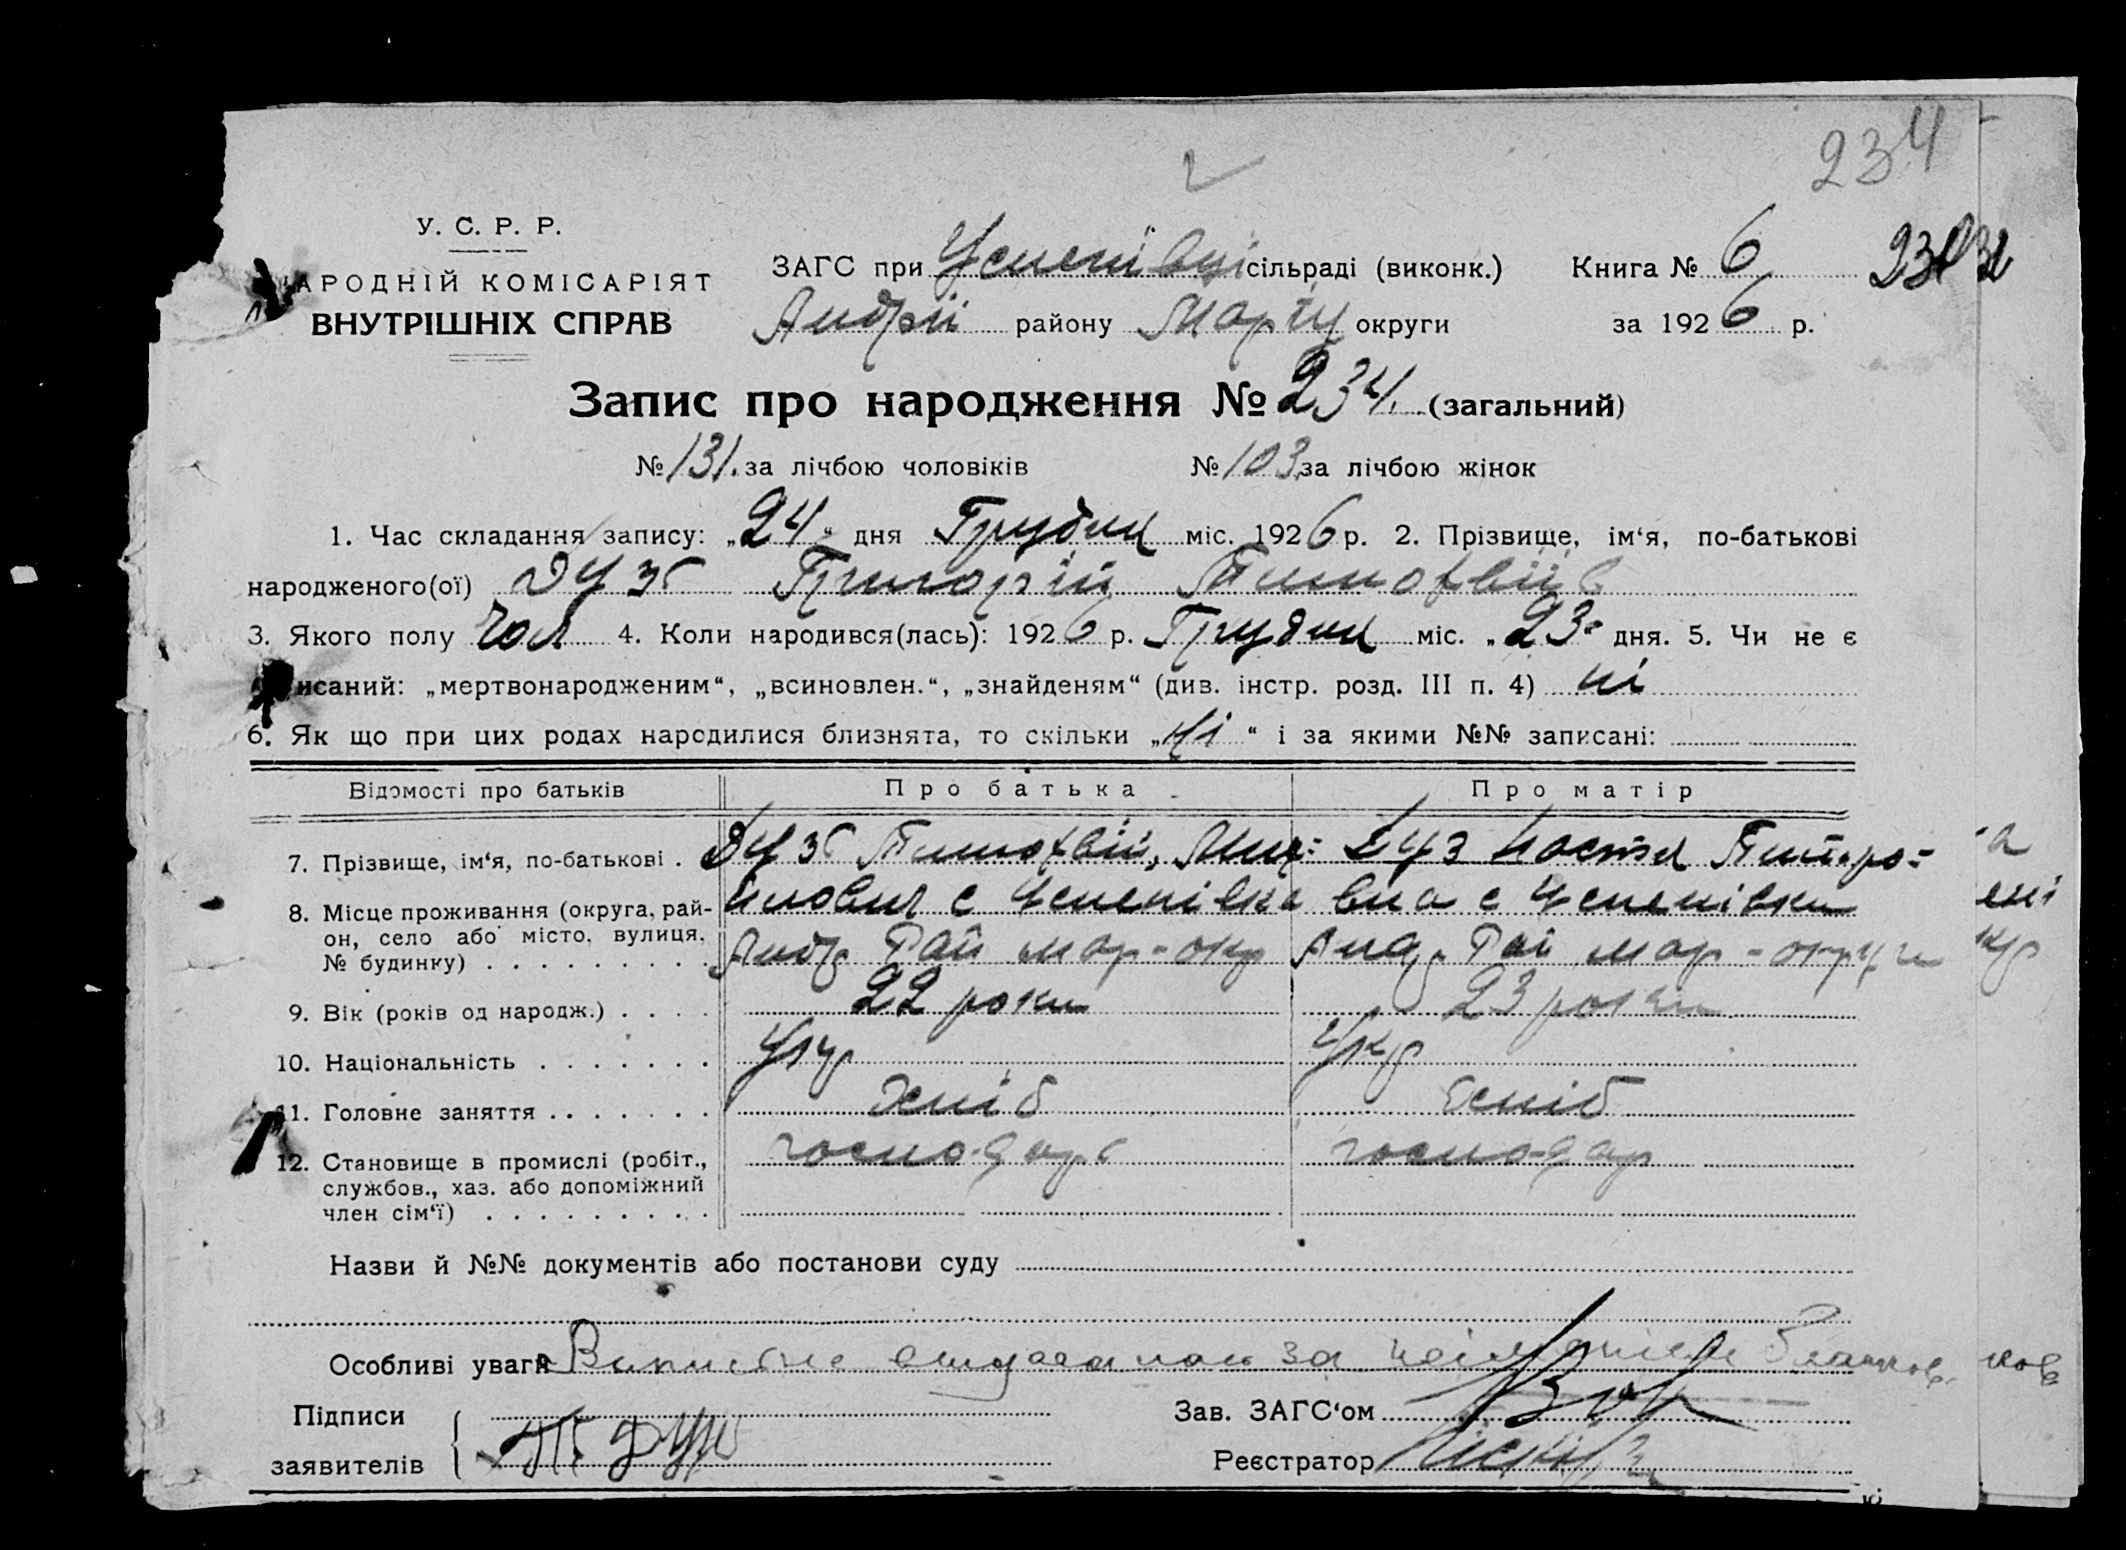 234
У. С. Р. Р.
АРОДНІЙ КОМІСАРІЯТ
ВНУТРІШНІХ СПРАВ
ЗАГС при Успенівці сільраді (виконк.) Книга № 6
Андрїї району Марїу округи за 1926 р.
Запис про народження № 234. (загальний)
№ 131. за лічбою чоловіків № 103 за лічбою жінок
1. Час складання запису: „24“ дня Грудня міс. 1926 р. 2. Прізвище, ім‘я, по-батькові
народженого(ої) Дузь Григорій Тимофвіїв
3. Якого полу Чол 4. Коли народився(лась): 1926 р. Грудня міс. „23“ дня. 5. Чи не є
исаний: „мертвонародженим“, „всиновлен.“, „знайденям“ (див. інстр. розд. III п. 4) ні
6. Як що при цих родах народилися близнята, то скільки „ні“ і за якими №№ записані:
Відомості про батьків Про батька Про матір
7. Прізвище, ім‘я, по-батькові . Дузь Тимофвій, Мих= Дуз Настя Питро=
8. Місце проживання (округа, рай- йлович с Успенівка вна с Успенівки
он, село або місто, вулиця,
№ будинку) . . . . . . . . . Андр Рай мар-окр Анд. Рай мар-округи
9. Вік (років од народж.) . . . . 22 роки 23 роки
10. Національність . . . . . . . Укр Укр
11. Головне заняття . . . . . . . Хліб Хліб
12. Становище в промислі (робіт., господарь господар
службов., хаз. або допоміжний
член сім‘ї) . . . . . . . . . .
Назви й №№ документів або постанови суду
Особливі уваги за
Підписи
заявителів Т. Дузь
Зав. ЗАГС‘ом
Реєстратор